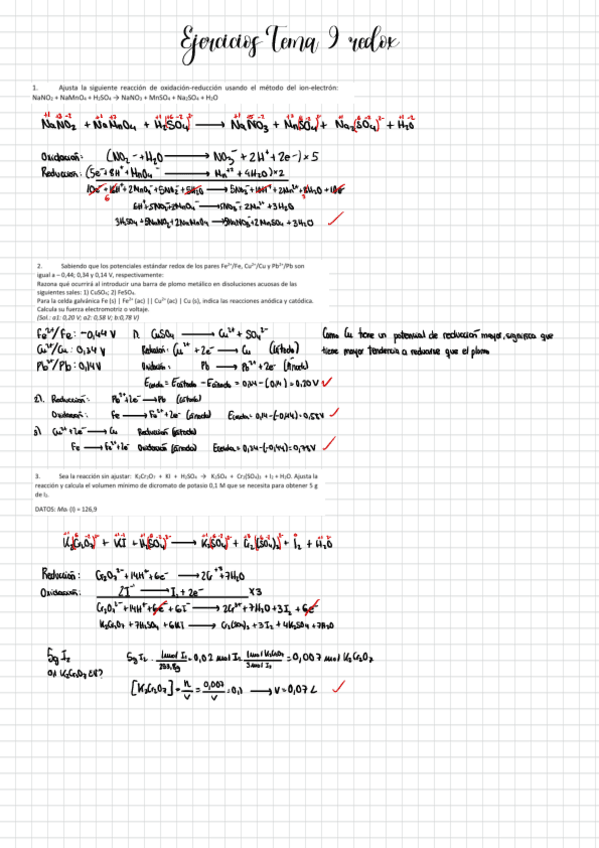 Ejercicios Tema 9 redox
1. Ajusta la siguiente reacción de oxidación-reducción usando el método del ion-electrón:
NaNO₂ + NaMnO₄ + H₂SO₄ → NaNO₃ + MnSO₄ + Na₂SO₄ + H₂O
NaNO₂ + NaMnO₄ + H₂(SO₄) → NaNO₃ + Mn(SO₄) + Na₂(SO₄) + H₂O
Oxidación: (NO₂⁻ + H₂O → NO₃⁻ + 2H⁺ + 2e⁻) × 5
Reducción: (5e⁻ + 8H⁺ + MnO₄⁻ → Mn⁺² + 4H₂O) × 2
10e⁻ + 16H⁺ + 2MnO₄⁻ + 5NO₂⁻ + 5H₂O → 5NO₃⁻ + 10H⁺ + 2Mn²⁺ + 8H₂O + 10e⁻
6 3
6H⁺ + 5NO₂⁻ + 2MnO₄⁻ → 5NO₃⁻ + 2Mn²⁺ + 3H₂O
3H₂SO₄ + 5NaNO₂ + 2NaMnO₄ → 5NaNO₃ + 2MnSO₄ + 3H₂O
2. Sabiendo que los potenciales estándar redox de los pares Fe²⁺/Fe, Cu²⁺/Cu y Pb²⁺/Pb son
igual a – 0,44; 0,34 y 0,14 V, respectivamente:
Razona qué ocurrirá al introducir una barra de plomo metálico en disoluciones acuosas de las
siguientes sales: 1) CuSO₄; 2) FeSO₄.
Para la celda galvánica Fe (s) | Fe²⁺ (ac) || Cu²⁺ (ac) | Cu (s), indica las reacciones anódica y catódica.
Calcula su fuerza electromotriz o voltaje.
(Sol.: a1: 0,20 V; a2: 0,58 V; b:0,78 V)
Fe²⁺/Fe: -0,44 V
Cu²⁺/Cu: 0,34 V
Pb²⁺/Pb: 0,14V
1). CuSO₄ → Cu²⁺ + SO₄²⁻
Reducción: Cu²⁺ + 2e⁻ → Cu (Cátodo)
Oxidación: Pb → Pb²⁺ + 2e⁻ (Ánodo)
Ecelda = Ecátodo - Eánodo = 0,34 - (0,14) = 0,20 V
Como Cu tiene un potencial de reducción mayor, significa que
tiene mayor tendencia a reducirse que el plomo
2). Reducción: Pb²⁺ + 2e⁻ → Pb (cátodo)
Oxidación: Fe → Fe²⁺ + 2e⁻ (ánodo) Ecelda = 0,14 - (-0,44) = 0,58V
3) Cu²⁺ + 2e⁻ → Cu Reducción (cátodo)
Fe → Fe²⁺ + 2e⁻ Oxidación (ánodo) Ecelda = 0,34 - (-0,44) = 0,78V
3. Sea la reacción sin ajustar: K₂Cr₂O₇ + KI + H₂SO₄ → K₂SO₄ + Cr₂(SO₄)₃ + I₂ + H₂O. Ajusta la
reacción y calcula el volumen mínimo de dicromato de potasio 0,1 M que se necesita para obtener 5 g
de I₂.
DATOS: Mm (I) = 126,9
K₂Cr₂O₇ + KI + H₂(SO₄) → K₂(SO₄) + Cr₂(SO₄)₃ + I₂ + H₂O
Reducción: Cr₂O₇²⁻ + 14H⁺ + 6e⁻ → 2Cr⁺³ + 7H₂O
Oxidación: 2I⁻ → I₂ + 2e⁻ ×3
Cr₂O₇²⁻ + 14H⁺ + 6e⁻ + 6I⁻ → 2Cr³⁺ + 7H₂O + 3I₂ + 6e⁻
K₂Cr₂O₇ + 7H₂SO₄ + 6KI → Cr₂(SO₄)₃ + 3I₂ + 4K₂SO₄ + 7H₂O
5g I₂
5g I₂ · 1mol I₂ / 253,8g = 0,02 mol I₂ · 1mol K₂Cr₂O₇ / 3mol I₂ = 0,007 mol K₂Cr₂O₇
[K₂Cr₂O₇] = n/V = 0,007/V = 0,1 → V = 0,07 L